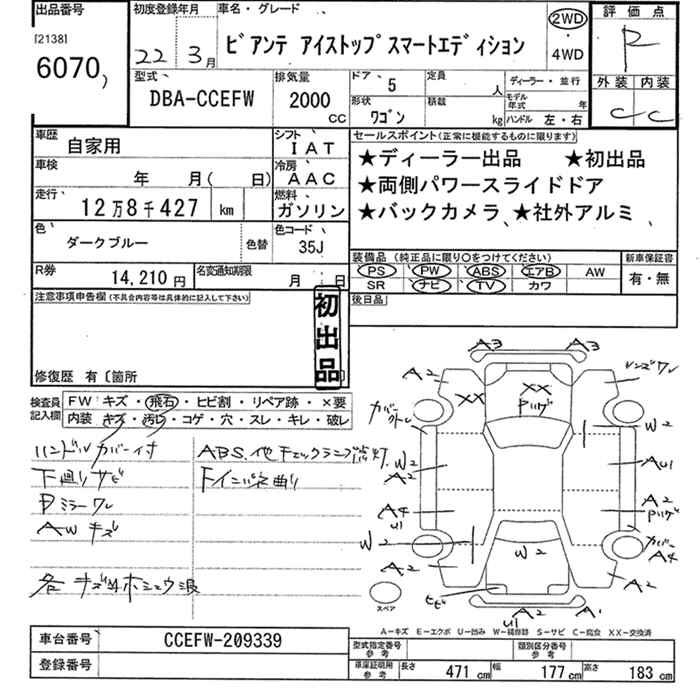 出品番号
[2138]
6070)
初度登録年月
22年 3月
車名・グレード
ビアンテ アイストップスマートエディション
2WD
・
4WD
評価点
R
外装 内装
C C
型式
DBA-CCEFW
排気量
2000
CC
ドア 5
形状 ワゴン
定員 人
積載 kg
ディーラー・並行
モデル年式 年
ハンドル 左・右
車歴
自家用
シフト
IAT
車検
年 月( 日)
冷房
AAC
走行
12万8千427 km
燃料
ガソリン
色
ダークブルー
色替
色コード
35J
R券
14,210円
名変通知期限
月 日
セールスポイント(正常に機能するものに限ります)
★ディーラー出品 ★初出品
★両側パワースライドドア
★バックカメラ ★社外アルミ
装備品(純正品に限り○をつけてください)
PS PW ABS エアB AW
SR ナビ TV カワ
新車保証書
有・無
後日品
注意事項申告欄(不具合内容等は具体的に記入して下さい)
初出品
修復歴 有〔箇所 〕
検査員記入欄
FW キズ・飛石・ヒビ割・リペア跡・×要
内装 キズ・汚レ・コゲ・穴・スレ・キレ・破レ
ハンドルカバー付
下廻リサビ
Pミラーワレ
AWキズ
各キズ凹ホシュウ跡
ABS.他チェックランプ点灯.
Fインパネ曲り
A3 A3
A2
レンズワレ
XX
XX
Pハゲ
カバー
W2
W2
A2
AU1
A4
U1
A2
Pハゲ
W2
カバー
A4
A2
W2
A2
ヒビ
A2
U1
A1
スペア
A-キズ E-エクボ U-凹み W-補修跡 S-サビ C-腐食 XX-交換済
車台番号
CCEFW-209339
登録番号
型式指定番号
参考
類別区分番号
参考
車庫証明用
参考
長さ 471 cm 幅 177 cm 高さ 183 cm